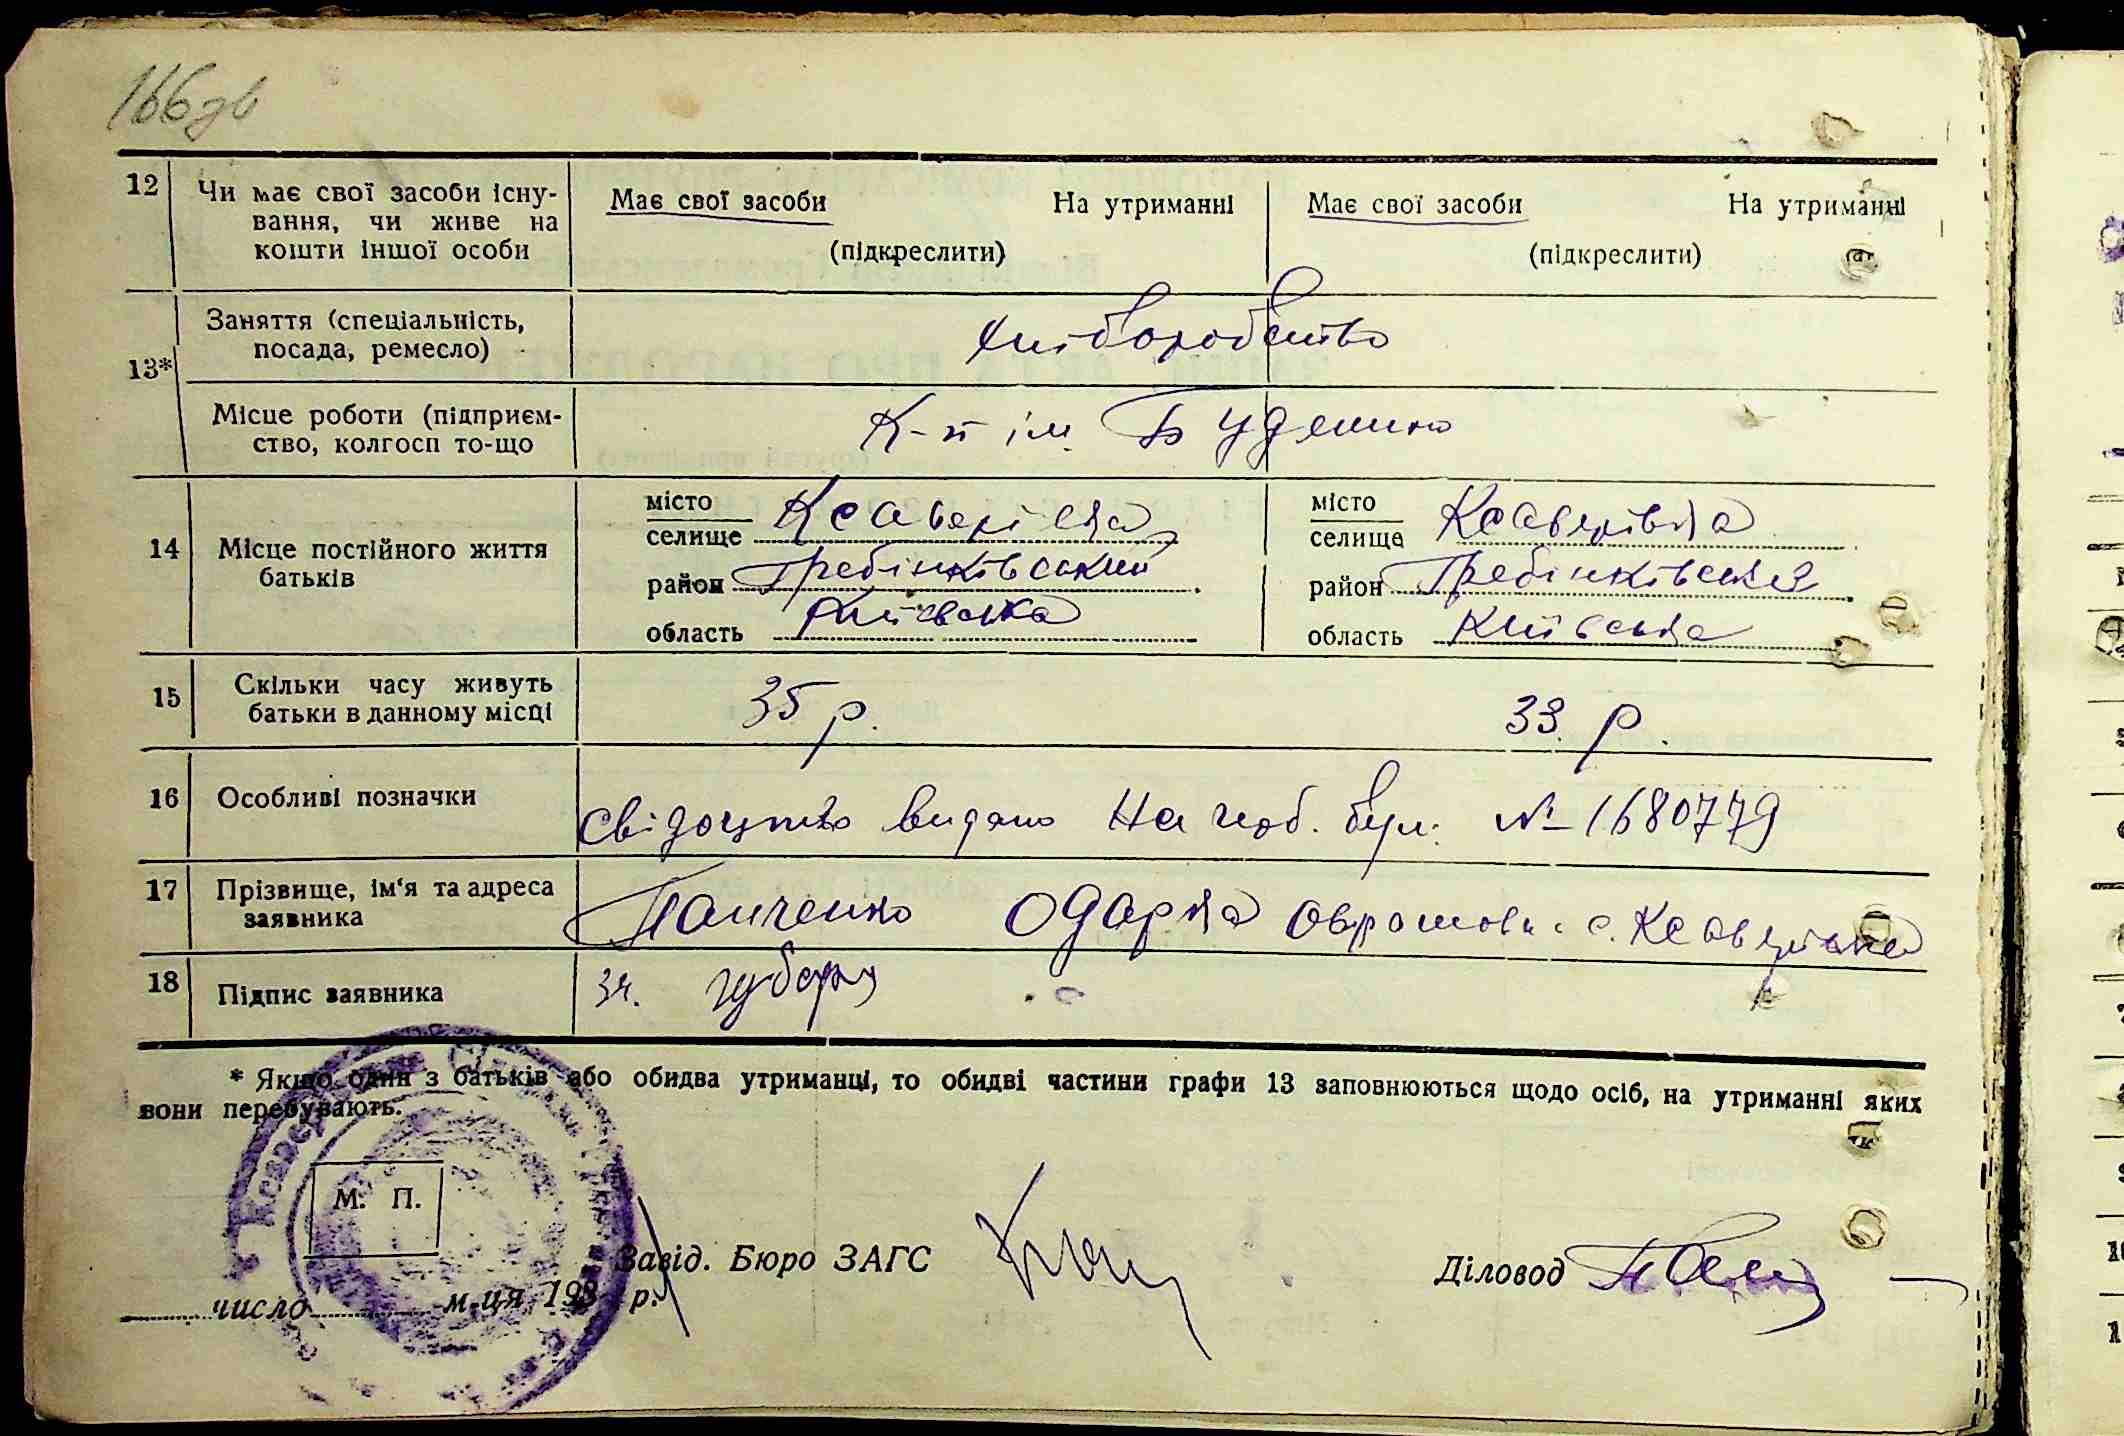 166зв
12 Чи має свої засоби існу-
вання, чи живе на
кошти іншої особи
Має свої засоби На утриманні
(підкреслити)
Має свої засоби На утриманні
(підкреслити)
13*
Заняття (спеціальність,
посада, ремесло)
хліборобство
Місце роботи (підприєм-
ство, колгосп то-що
К-п ім. Буденно
14 Місце постійного життя
батьків
місто
селище Ксаверівка
район Гребінківський
область Київська
місто
селище Ксаверівка
район Гребінківський
область Київська
15 Скільки часу живуть
батьки в данному місці
35 р.
33. р.
16 Особливі позначки
свідоцтво видано На гоб. бул. № 1680779
17 Прізвище, ім'я та адреса
заявника
Панченко Одарка с. Ксаверівка
18 Підпис заявника
* Якщо один з батьків або обидва утриманці, то обидві частини графи 13 заповнюються щодо осіб, на утриманні яких
вони перебувають.
М. П.
Завід. Бюро ЗАГС
Діловод
число м-ця, 193 р.